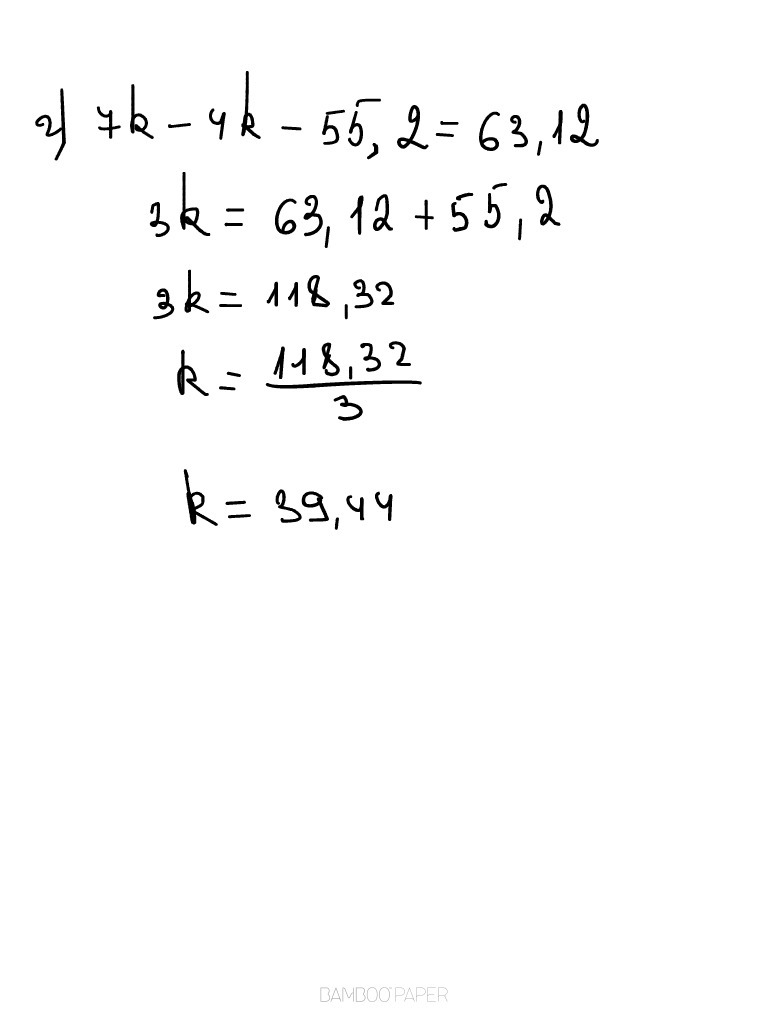 г) 7k - 4k - 55,2 = 63,12
3k = 63,12 + 55,2
3k = 118,32
k = 118,32 / 3
k = 39,44
BAMBOO PAPER